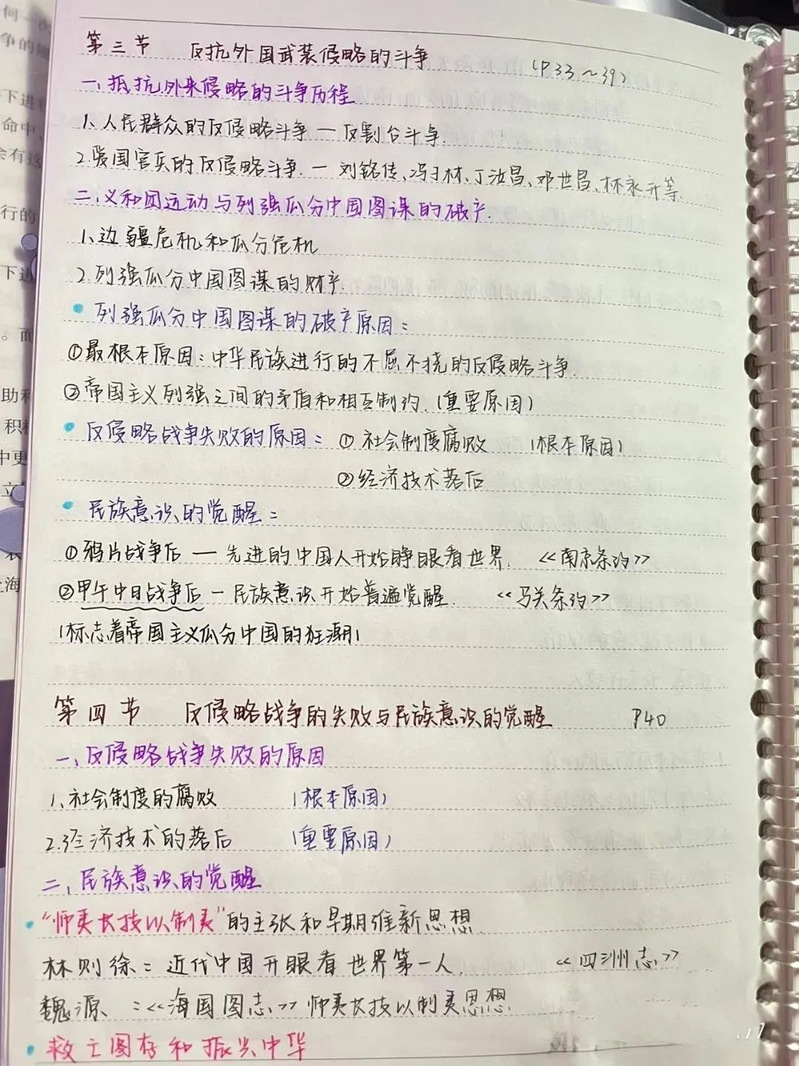 第三节 反抗外国武装侵略的斗争 (P33~39)
一、抵抗外来侵略的斗争历程
1、人民群众的反侵略斗争 — 反割台斗争.
2.爱国官兵的反侵略斗争. — 刘铭传、冯子材、丁汝昌、邓世昌、林永升等.
二、义和团运动与列强瓜分中国图谋的破产.
1、边疆危机和瓜分危机
2.列强瓜分中国图谋的财产.
• 列强瓜分中国图谋的破产原因:
①最根本原因:中华民族进行的不屈不挠的反侵略斗争.
②帝国主义列强之间的矛盾和相互制约.(重要原因)
• 反侵略战争失败的原因: ①社会制度腐败 (根本原因)
②经济技术落后
• 民族意识的觉醒:
①鸦片战争后 — 先进的中国人开始睁眼看世界. 《南京条约》
②甲午中日战争后 — 民族意识开始普遍觉醒. 《马关条约》
(标志着帝国主义瓜分中国的狂潮)
第四节 反侵略战争的失败与民族意识的觉醒 P40
一、反侵略战争失败的原因
1、社会制度的腐败 (根本原因)
2.经济技术的落后 (重要原因)
二、民族意识的觉醒
• “师夷长技以制夷”的主张和早期维新思想.
林则徐:近代中国开眼看世界第一人. 《四洲志》
魏源 :《海国图志》师夷长技以制夷思想.
• 救亡图存和振兴中华